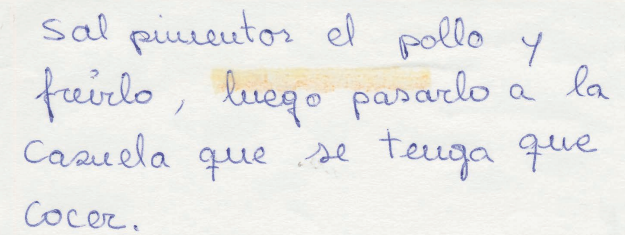 Sal pimentar el pollo y
freirlo, luego pasarlo a la
Cazuela que se tenga que
cocer.